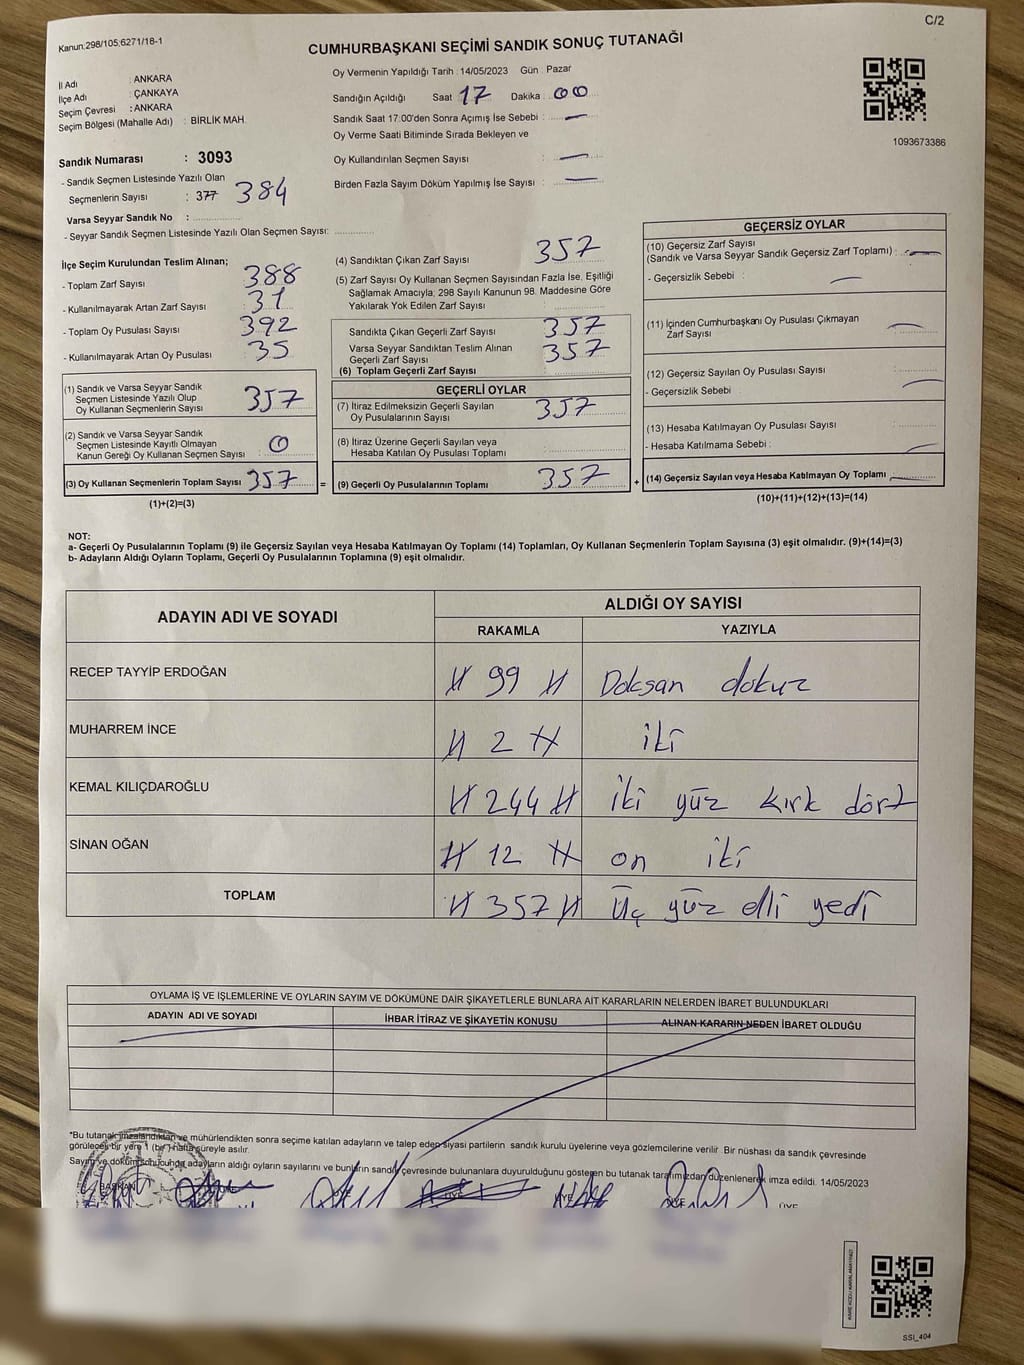 C/2
Kanun:298/105;6271/18-1
CUMHURBAŞKANI SEÇİMİ SANDIK SONUÇ TUTANAĞI
İl Adı : ANKARA
İlçe Adı : ÇANKAYA
Seçim Çevresi : ANKARA
Seçim Bölgesi (Mahalle Adı) : BİRLİK MAH.
Oy Vermenin Yapıldığı Tarih : 14/05/2023 Gün : Pazar
Sandığın Açıldığı Saat 17 Dakika : 00
Sandık Saat 17:00'den Sonra Açımış İse Sebebi : —
Oy Verme Saati Bitiminde Sırada Bekleyen ve
Oy Kullandırılan Seçmen Sayısı : —
Birden Fazla Sayım Döküm Yapılmış İse Sayısı : —
1093673386
Sandık Numarası : 3093
- Sandık Seçmen Listesinde Yazılı Olan
Seçmenlerin Sayısı : 377 384
Varsa Seyyar Sandık No :
- Seyyar Sandık Seçmen Listesinde Yazılı Olan Seçmen Sayısı:
İlçe Seçim Kurulundan Teslim Alınan;
- Toplam Zarf Sayısı : 388
- Kullanılmayarak Artan Zarf Sayısı : 31
- Toplam Oy Pusulası Sayısı : 392
- Kullanılmayarak Artan Oy Pusulası : 35
(1) Sandık ve Varsa Seyyar Sandık
Seçmen Listesinde Yazılı Olup
Oy Kullanan Seçmenlerin Sayısı : 357
(2) Sandık ve Varsa Seyyar Sandık
Seçmen Listesinde Kayıtlı Olmayan
Kanun Gereği Oy Kullanan Seçmen Sayısı : 0
(3) Oy Kullanan Seçmenlerin Toplam Sayısı : 357 =
(1)+(2)=(3)
(4) Sandıktan Çıkan Zarf Sayısı : 357
(5) Zarf Sayısı Oy Kullanan Seçmen Sayısından Fazla İse, Eşitliği
Sağlamak Amacıyla, 298 Sayılı Kanunun 98. Maddesine Göre
Yakılarak Yok Edilen Zarf Sayısı :
Sandıkta Çıkan Geçerli Zarf Sayısı : 357
Varsa Seyyar Sandıktan Teslim Alınan
Geçerli Zarf Sayısı : 357
(6) Toplam Geçerli Zarf Sayısı :
GEÇERLİ OYLAR
(7) İtiraz Edilmeksizin Geçerli Sayılan
Oy Pusulalarının Sayısı : 357
(8) İtiraz Üzerine Geçerli Sayılan veya
Hesaba Katılan Oy Pusulası Toplamı :
(9) Geçerli Oy Pusulalarının Toplamı : 357 +
GEÇERSİZ OYLAR
(10) Geçersiz Zarf Sayısı
(Sandık ve Varsa Seyyar Sandık Geçersiz Zarf Toplamı) : —
- Geçersizlik Sebebi : —
(11) İçinden Cumhurbaşkanı Oy Pusulası Çıkmayan
Zarf Sayısı : —
(12) Geçersiz Sayılan Oy Pusulası Sayısı :
- Geçersizlik Sebebi : —
(13) Hesaba Katılmayan Oy Pusulası Sayısı :
- Hesaba Katılmama Sebebi : —
(14) Geçersiz Sayılan veya Hesaba Katılmayan Oy Toplamı : —
(10)+(11)+(12)+(13)=(14)
NOT:
a- Geçerli Oy Pusulalarının Toplamı (9) ile Geçersiz Sayılan veya Hesaba Katılmayan Oy Toplamı (14) Toplamları, Oy Kullanan Seçmenlerin Toplam Sayısına (3) eşit olmalıdır. (9)+(14)=(3)
b- Adayların Aldığı Oyların Toplamı, Geçerli Oy Pusulalarının Toplamına (9) eşit olmalıdır.
ADAYIN ADI VE SOYADI ALDIĞI OY SAYISI
RAKAMLA YAZIYLA
RECEP TAYYİP ERDOĞAN 99 Doksan dokuz
MUHARREM İNCE 2 iki
KEMAL KILIÇDAROĞLU 244 iki yüz kırk dört
SİNAN OĞAN 12 on iki
TOPLAM 357 Üç yüz elli yedi
OYLAMA İŞ VE İŞLEMLERİNE VE OYLARIN SAYIM VE DÖKÜMÜNE DAİR ŞİKAYETLERLE BUNLARA AİT KARARLARIN NELERDEN İBARET BULUNDUKLARI
ADAYIN ADI VE SOYADI İHBAR İTİRAZ VE ŞİKAYETİN KONUSU ALINAN KARARIN NEDEN İBARET OLDUĞU
*Bu tutanak imzalandıktan ve mühürlendikten sonra seçime katılan adayların ve talep eden siyasi partilerin sandık kurulu üyelerine veya gözlemcilerine verilir. Bir nüshası da sandık çevresinde
görülecek bir yere 1 (bir) hafta süreyle asılır.
Sayım ve döküm sonucunda adayların aldığı oyların sayılarını ve bunların sandık çevresinde bulunanlara duyurulduğunu gösteren bu tutanak tarafımızdan düzenlenerek imza edildi. 14/05/2023
BAŞKAN ÜYE ÜYE ÜYE ÜYE
SSI_404